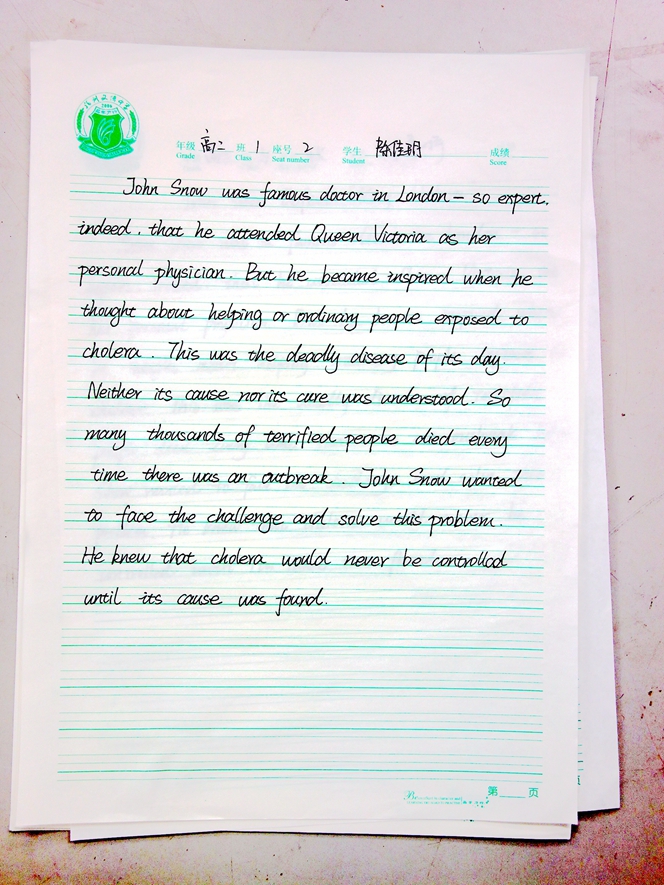 年级 高二 班 1 座号 2 学生 陈佳玥 成绩
Grade Class Seat number Student Score
John Snow was famous doctor in London – so expert,
indeed, that he attended Queen Victoria as her
personal physician. But he became inspired when he
thought about helping or ordinary people exposed to
cholera. This was the deadly disease of its day.
Neither its cause nor its cure was understood. So
many thousands of terrified people died every
time there was an outbreak. John Snow wanted
to face the challenge and solve this problem.
He knew that cholera would never be controlled
until its cause was found.
第 页